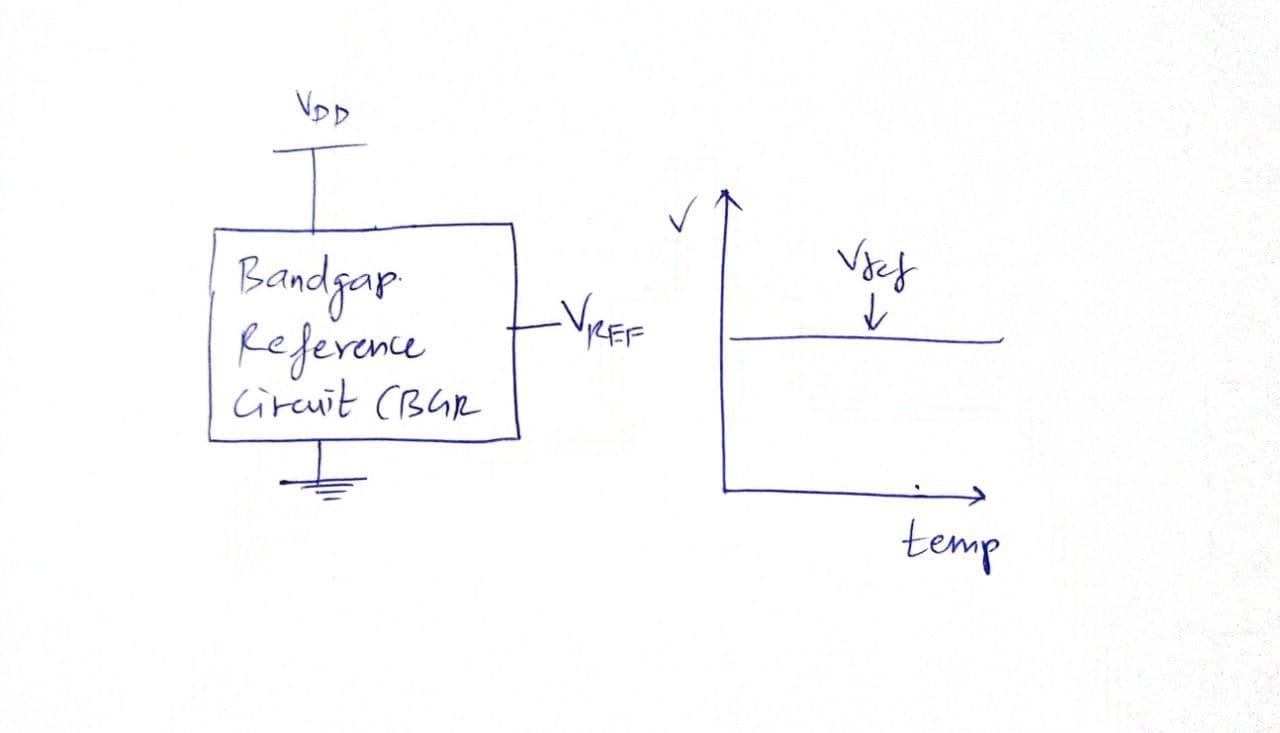 VDD
Bandgap
Reference
Circuit (BGR
VREF
V
Vref
temp